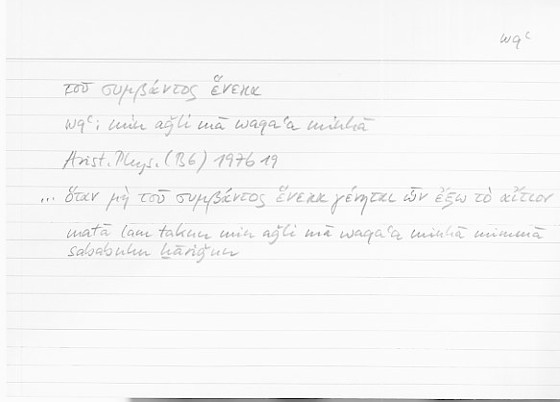 wqʿ
τοῦ συμβάντος ἕνεκα
wqʿ: min aǧli mā waqaʿa minhā
Arist. Phys. (B6) 197b19
... ὅταν μὴ τοῦ συμβάντος ἕνεκα γένηται ὧν ἔξω τὸ αἴτιον
matā lam takun min aǧli mā waqaʿa minhā mimmā
sababuhu ḫāriǧun